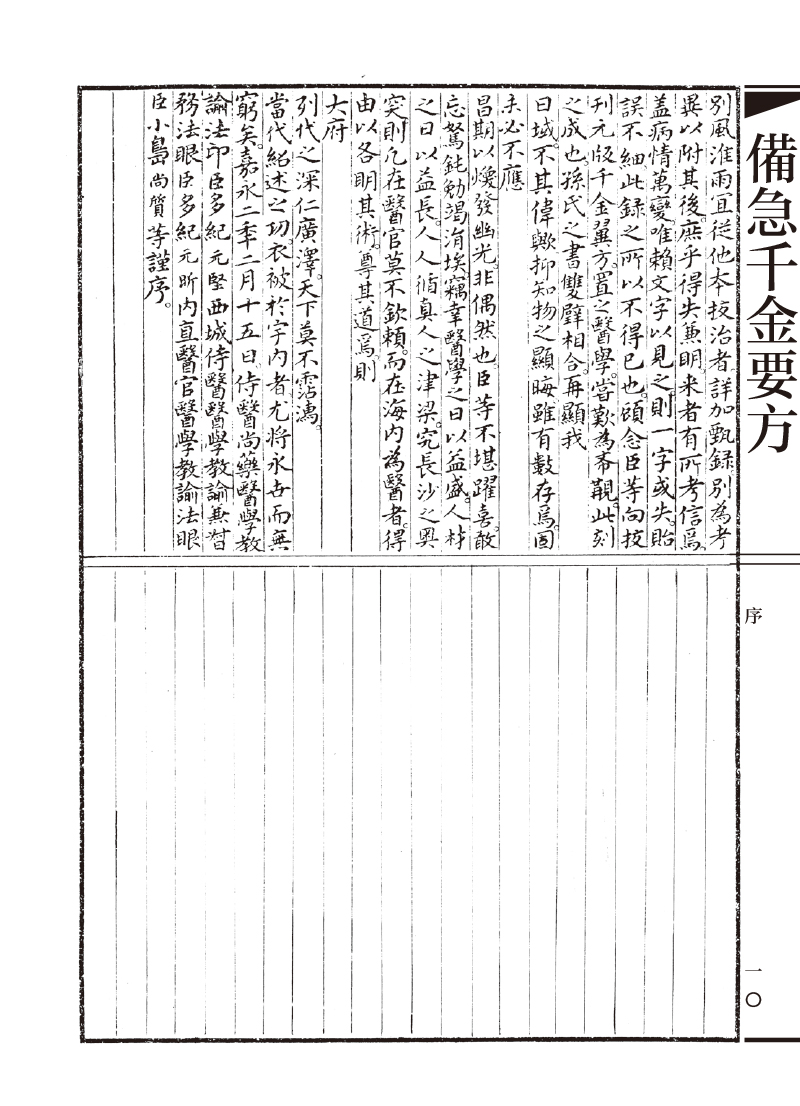 備急千金要方
序
一〇
別風淮雨冝從他本技治者詳加甄録別為考
異以附其後庶乎得失兼明来者有所考信焉
盖病情萬變唯賴文字以見之則一字或失貽
誤不細此録之所以不得已也顧念臣等向技
刊元版千金翼方置之醫學嘗歎為希覯此刻
之成也孫氏之書雙壁相合再顯我
日域不其偉歟抑知物之顯晦雖有數存焉固
未必不應
昌期以煥發幽光非偶然也臣等不堪躍喜敢
忘駑鈍勉竭涓埃竊幸醫學之日以益盛人材
之日以益長人人循真人之津梁究長沙之奥
突則凡在醫官莫不欽賴而在海内為醫者得
由以各明其術尊其道焉則
大府
列代之深仁廣澤天下莫不霑濡
當代紹述之功衣被於宇内者尤將永世而無
窮矣嘉永二季二月十五日侍醫尚藥醫學教
諭法印臣多紀元堅西城侍醫醫學教諭兼督
務法眼臣多紀元昕内直醫官醫學教諭法眼
臣小島尚質等謹序